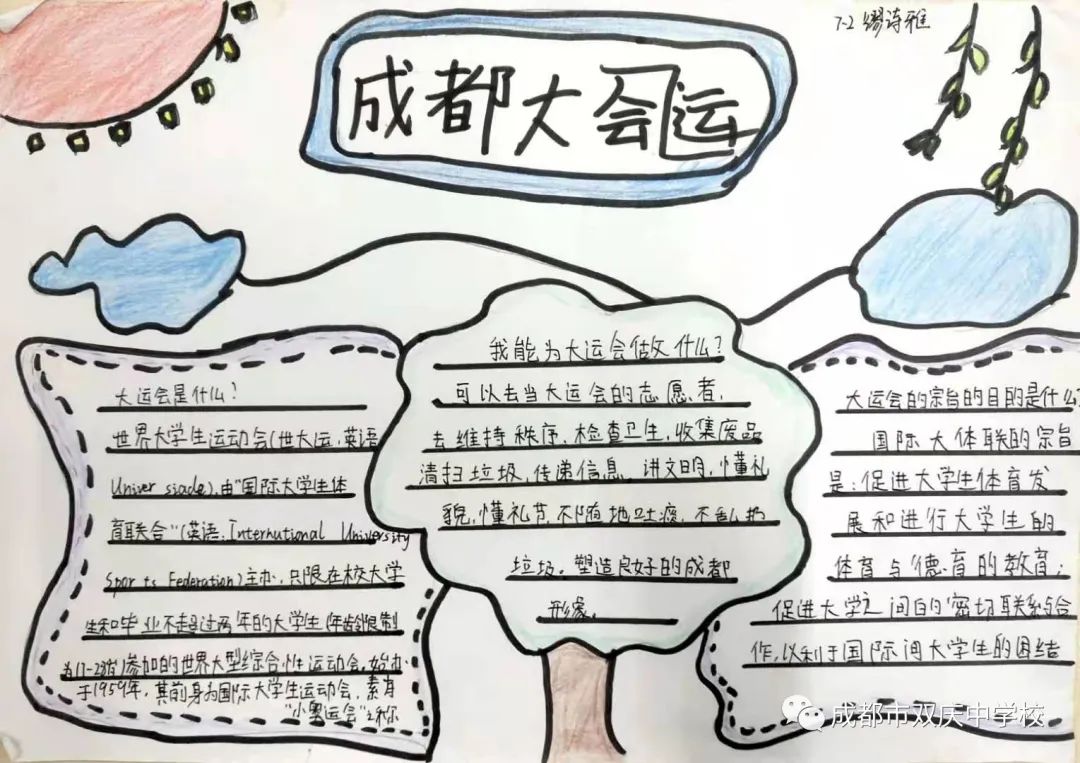 7-2 缪诗雅
成都大会运
大运会是什么?
世界大学生运动会(世大运,英语
Univer siade),由"国际大学生体
育联合"(英语,Internutional University
Spor ts Federation)主办,只限在校大学
生和毕业不超过两年的大学生(年龄限制
为17-28岁)参加的世界大型综合性运动会。始办
于1959年,其前身为国际大学生运动会,素有
"小奥运会"之称
我能为大运会做什么?
可以去当大运会的志愿者,
去维持秩序,检查卫生,收集废品
清扫垃圾,传递信息,讲文明,懂礼
貌,懂礼节,不随地吐痰,不乱扔
垃圾。塑造良好的成都
形象。
大运会的宗旨的目的是什么?
国际大体联的宗旨
是:促进大学生体育发
展和进行大学生的
体育与德育的教育;
促进大学之间的密切联系与合
作,以利于国际间大学生的团结
成都市双庆中学校